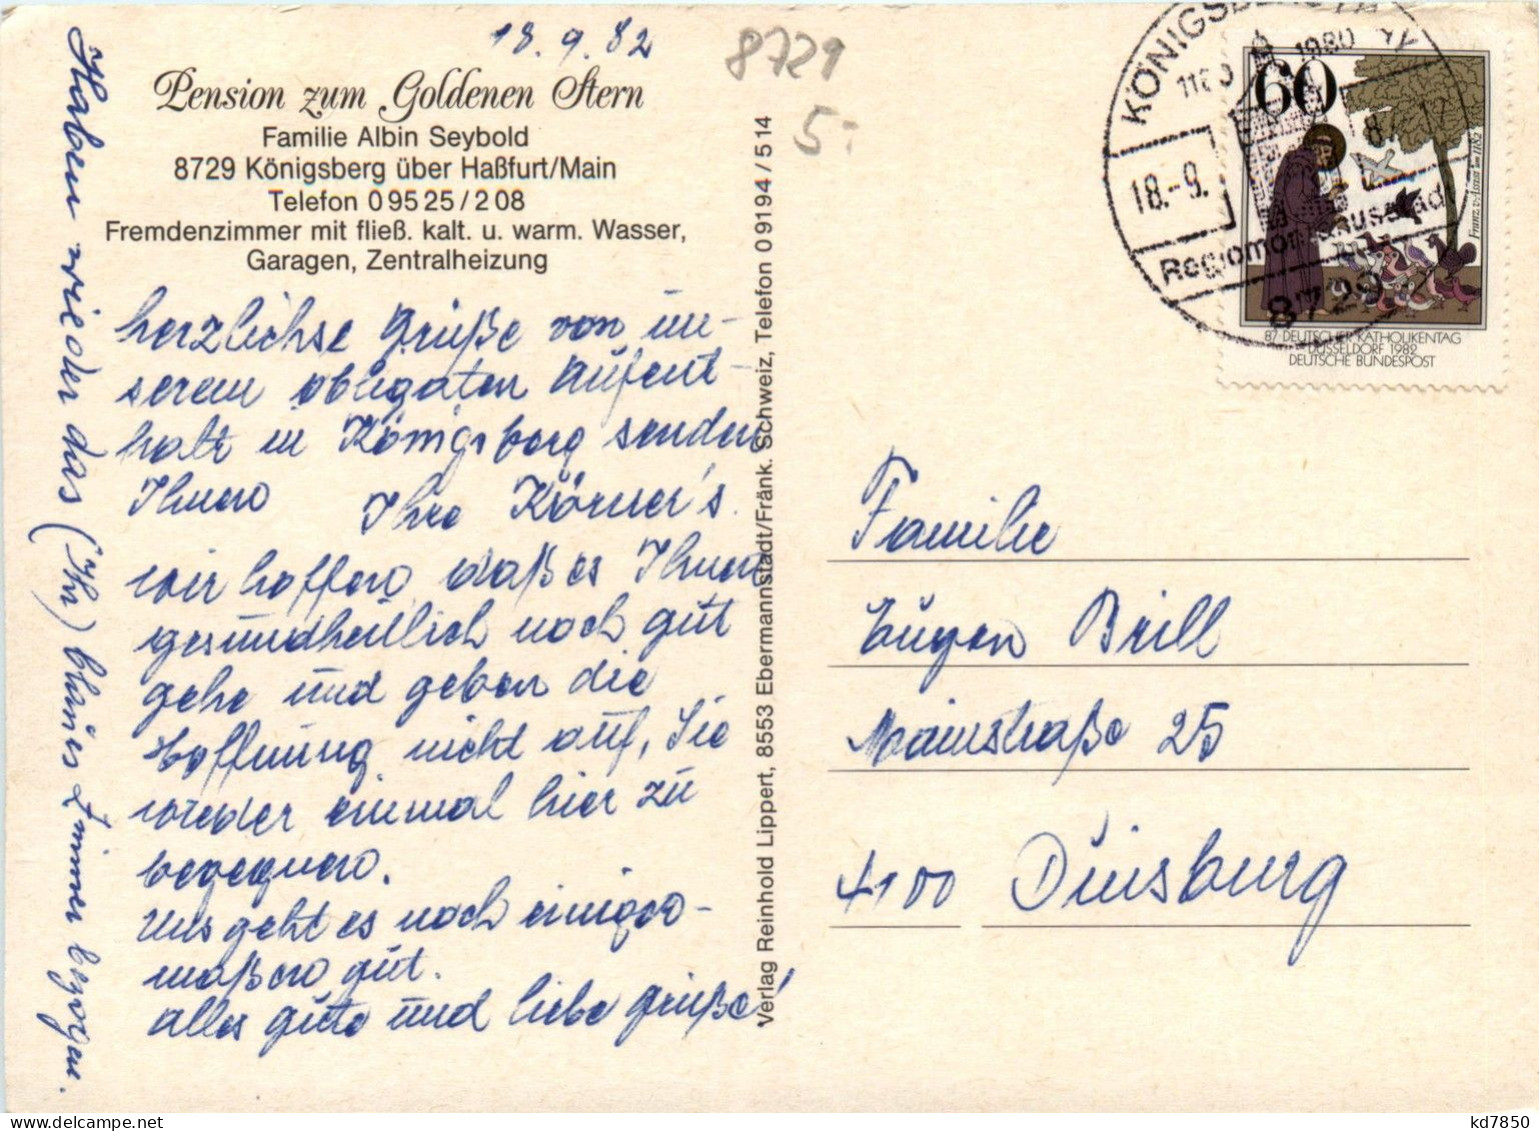 18.9.82
8729
5.-
Pension zum Goldenen Stern
Familie Albin Seybold
8729 Königsberg über Haßfurt/Main
Telefon 0 95 25 / 2 08
Fremdenzimmer mit fließ. kalt. u. warm. Wasser,
Garagen, Zentralheizung
herzlichse Grüße von un-
serem obligaten Aufent-
halt in Königsberg senden
Ihnen Ihre Körner's.
wir hoffen, daß es Ihnen
gesundheitlich noch gut
gehe und geben die
Hoffnung nicht auf, Sie
wieder einmal hier zu
begegnen.
Uns geht es noch einiger-
maßen gut.
alles gute und liebe Grüße!
Haben wieder das (Ihr) blaues Zimmer bezogen.
Verlag Reinhold Lippert, 8553 Ebermannstadt/Fränk. Schweiz, Telefon 0 9194 / 5 14
KÖNIGSBERG
1980
18.-9.
8729
60
Franz v. Assisi * um 1182
87. DEUTSCHER KATHOLIKENTAG
DÜSSELDORF 1982
DEUTSCHE BUNDESPOST
Familie
Eugen Brill
Mainstraße 25
4100 Duisburg
kd7850